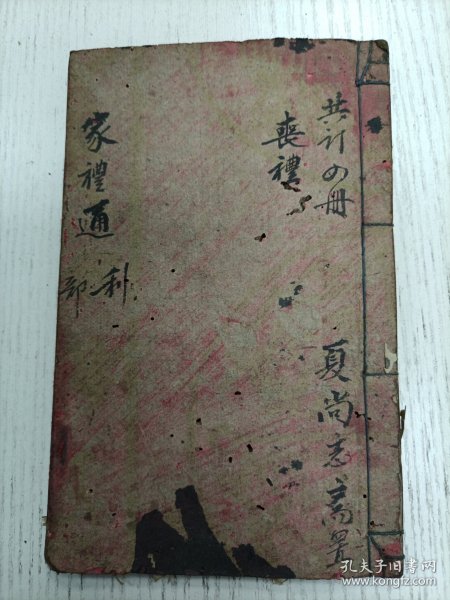 共訂四冊
夏尚志齋置
喪禮
家禮通
利
部
孔夫子旧书网
www.kongfz.com